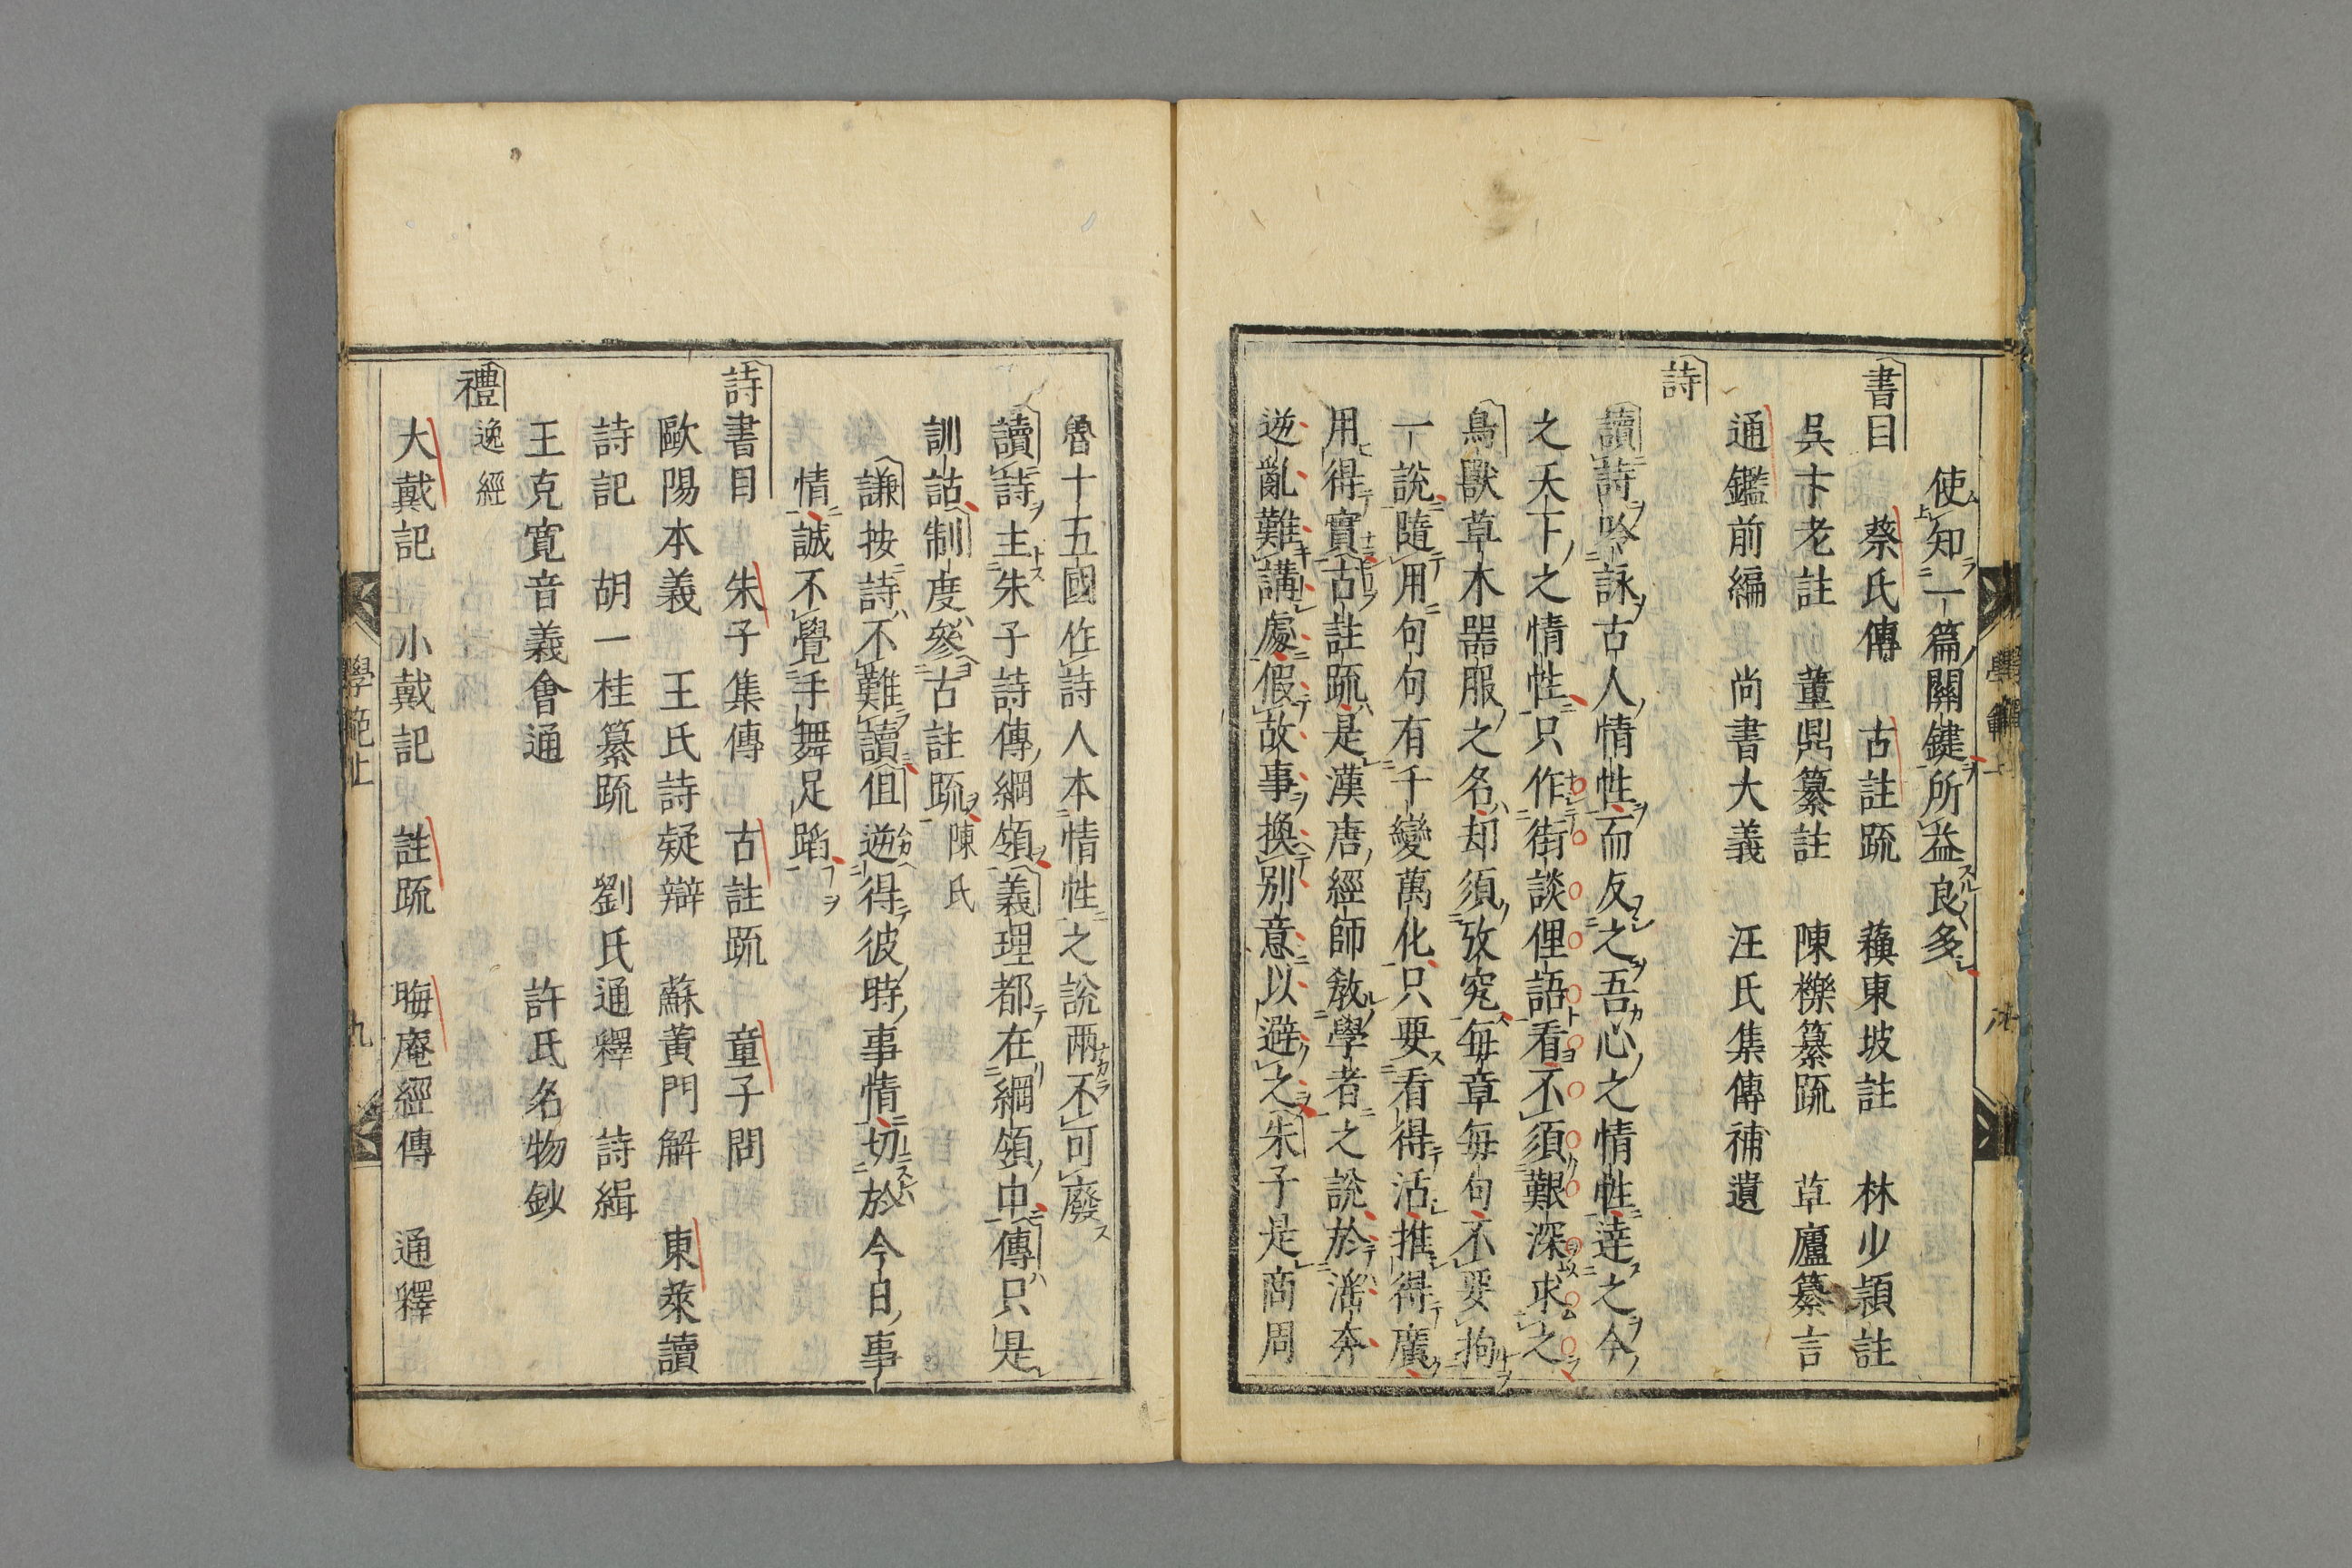 使知一篇關鍵所益良多
書目 蔡氏傳 古註䟽 蘓東坡註 林少頴註
吳卞老註 董鼎纂註 陳櫟纂䟽 草廬纂言
通鑑前編 尚書大義 汪氏集傳補遺
詩
讀詩吟詠古人情性而反之吾心之情性達之今
之天下之情性只作街談俚語看不須艱深求之
鳥獸草木噐服之名却須攷究每章每句不要拘
一說隨用句句有千變萬化只要看得活推得廣
用得實古註䟽是漢唐經師教學者之說於滛奔
逆亂難講處假故事換別意以避之朱子是商周
魯十五國作詩人本情性之說兩不可廢
讀詩主朱子詩傳綱領義理都在綱領中傳只是
訓詁制度參古註䟽陳氏
謙按詩不難讀但逆得彼時事情切於今日事
情誠不覺手舞足蹈
詩書目 朱子集傳 古註䟽 童子問
歐陽本義 王氏詩疑辯 蘇黃門解 東萊讀
詩記 胡一桂纂䟽 劉氏通釋 詩緝
王克寬音義會通 許氏名物鈔
禮 逸經
大戴記 小戴記 註䟽 晦庵經傳 通釋
學範上
九